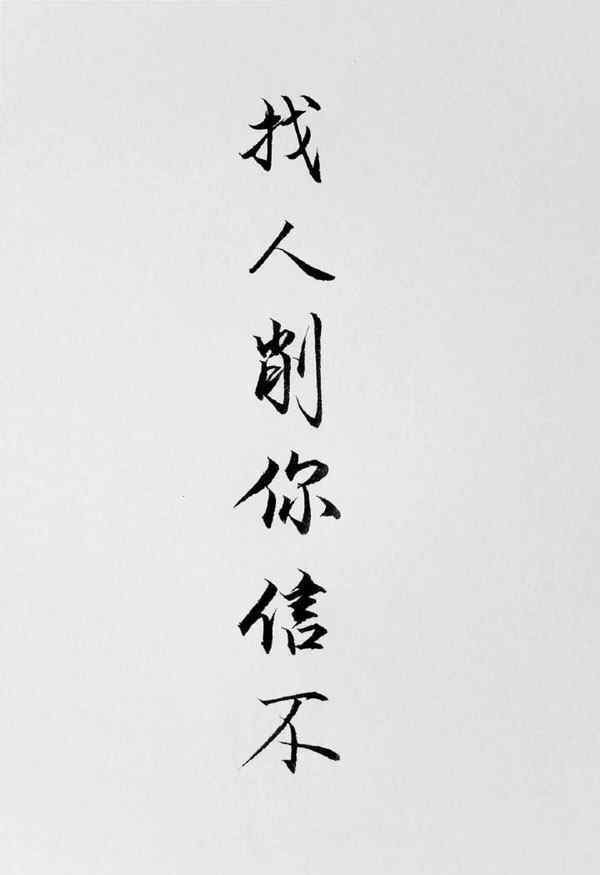 找人削你信不